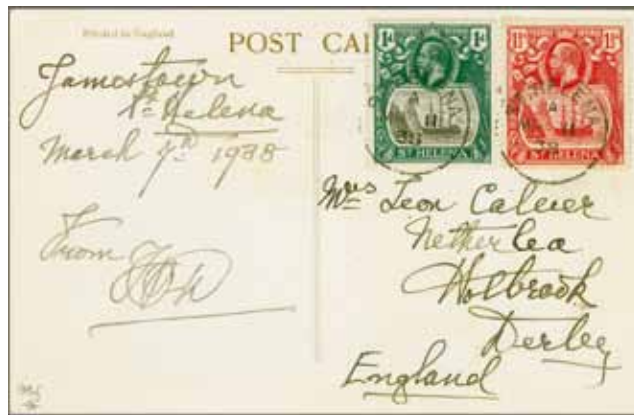 Printed in England
POST CA
Jamestown
St Helena
March 7th 1938
From
1d 1d
ST HELENA
1½d 1½d
ST HELENA
Mrs Leon
Nether Lea
Holbrook
Derby
England